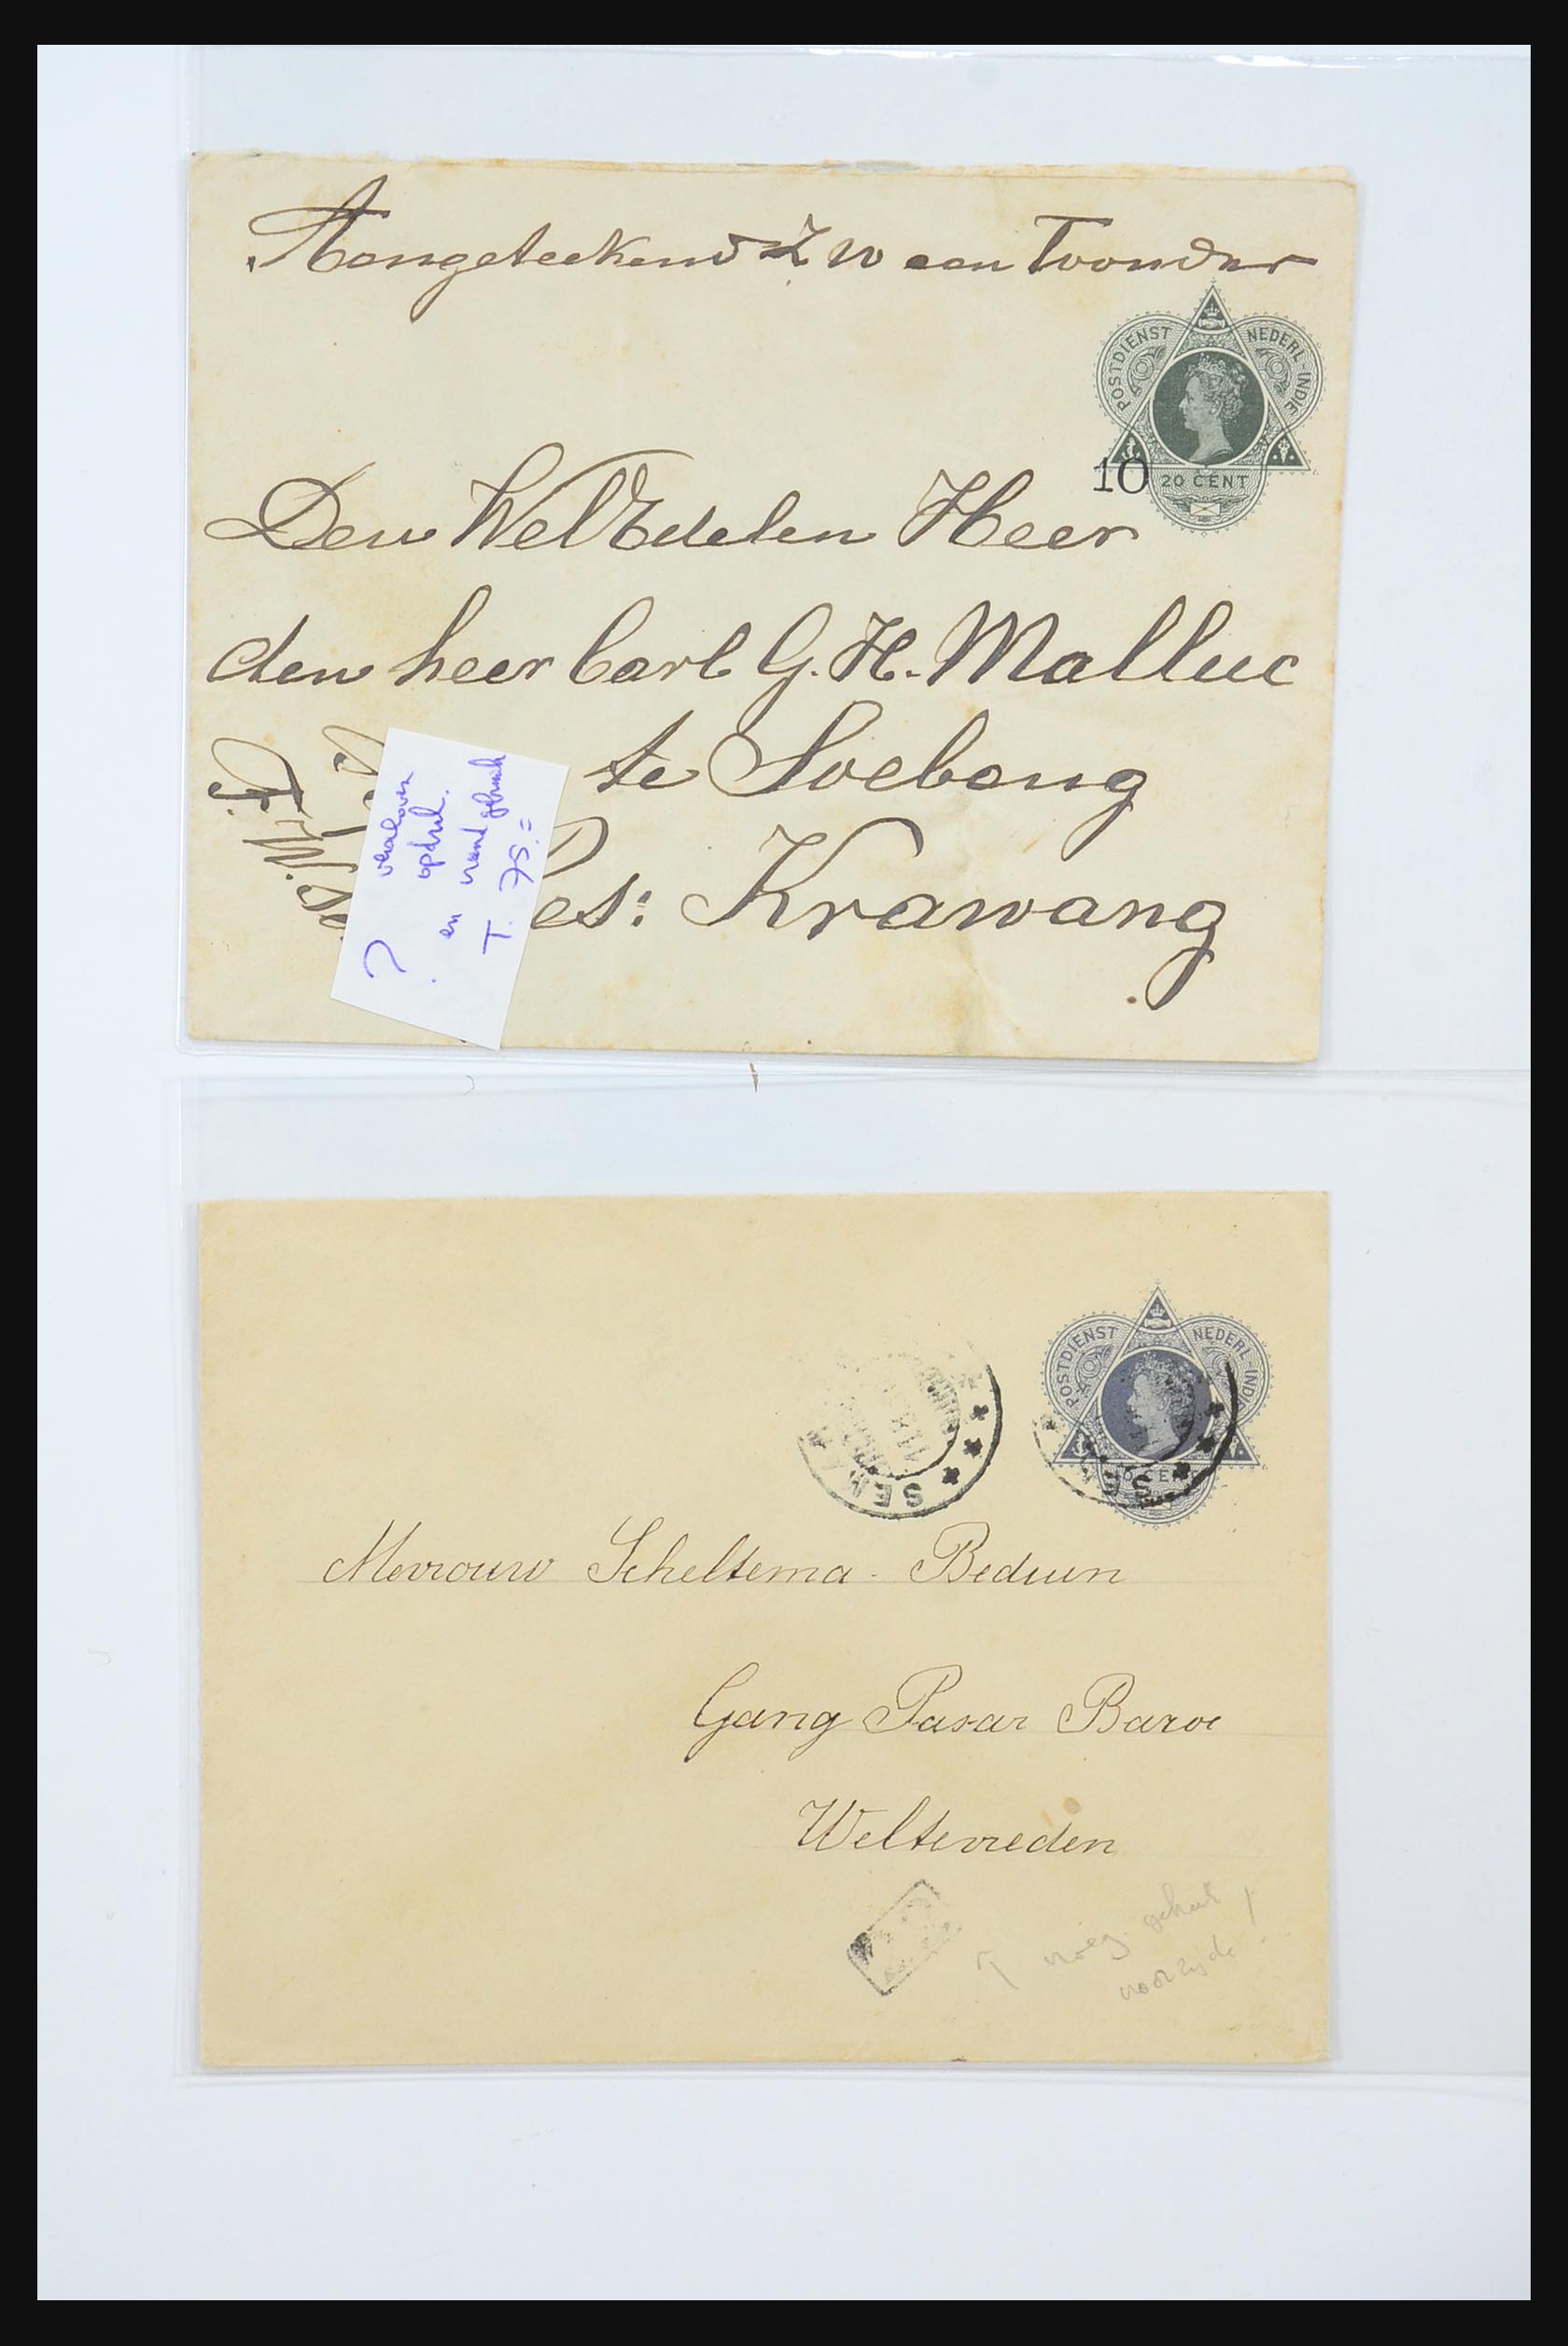 Aangeteekend
een Toonder
POSTDIENST NEDERL-INDIE
10
20 CENT
Den WelEdelen Heer
den heer Carl G. H. Malluc
te Soebang
Res: Krawang
?
opdruk.
en
T. 75.=
POSTDIENST NEDERL-INDIE
Mevrouw Scheltema - Beduin
Gang Pasar Baroe
Weltevreden
vroeg
voorzijde!